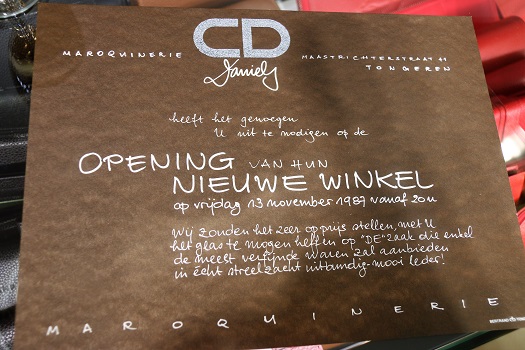 CD
MAROQUINERIE
Daniels
MAASTRICHTERSTRAAT 41
TONGEREN
heeft het genoegen
U uit te nodigen op de
OPENING VAN HUN
NIEUWE WINKEL
op vrijdag 13 november 1987 vanaf 20u
Wij zouden het zeer op prijs stellen, met U
het glas te mogen heffen op "DE" zaak die enkel
de meest verfijnde waren zal aanbieden
in écht streelzacht uitbundig-mooi leder!
MAROQUINERIE
BERTRAND